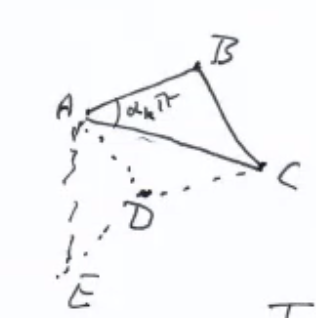 B
A
αₖπ
C
D
E
T